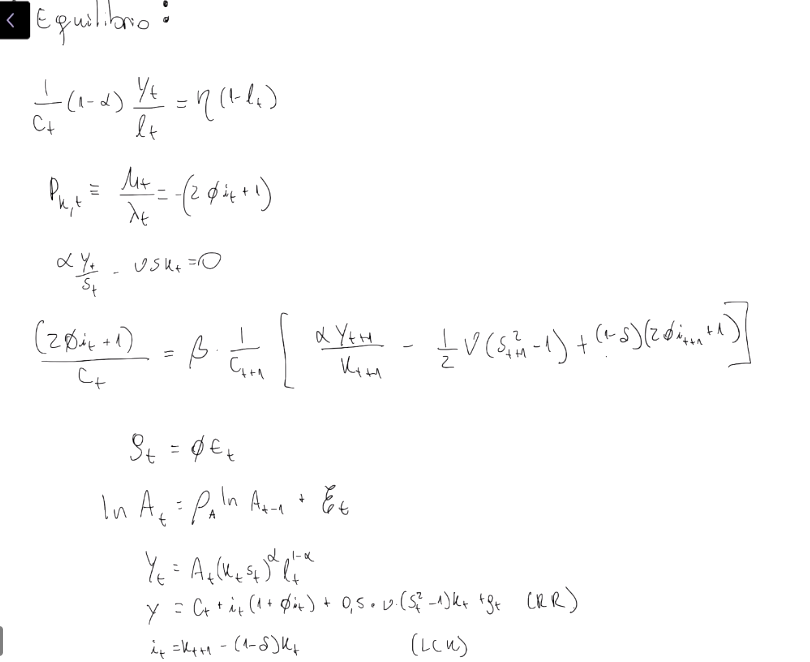 Equilibrio:
1/C_t (1-α) Y_t/l_t = η(1-l_t)
P_{k,t} ≡ μ_t/λ_t = -(2φi_t+1)
α Y_t/S_t - υSk_t = 0
(2φi_t+1)/C_t = β · 1/C_{t+1} [αY_{t+1}/k_{t+1} - 1/2 υ(S²_{t+1}-1) + (1-δ)(2φi_{t+1}+1)]
g_t = φϵ_t
ln A_t = ρ_A ln A_{t-1} + ξ_t
Y_t = A_t(k_t s_t)^α l_t^{1-α}
y = C_t + i_t(1+φi_t) + 0,5·υ·(S²_t-1)k_t + g_t (RR)
i_t = k_{t+1} - (1-δ)k_t (LCK)